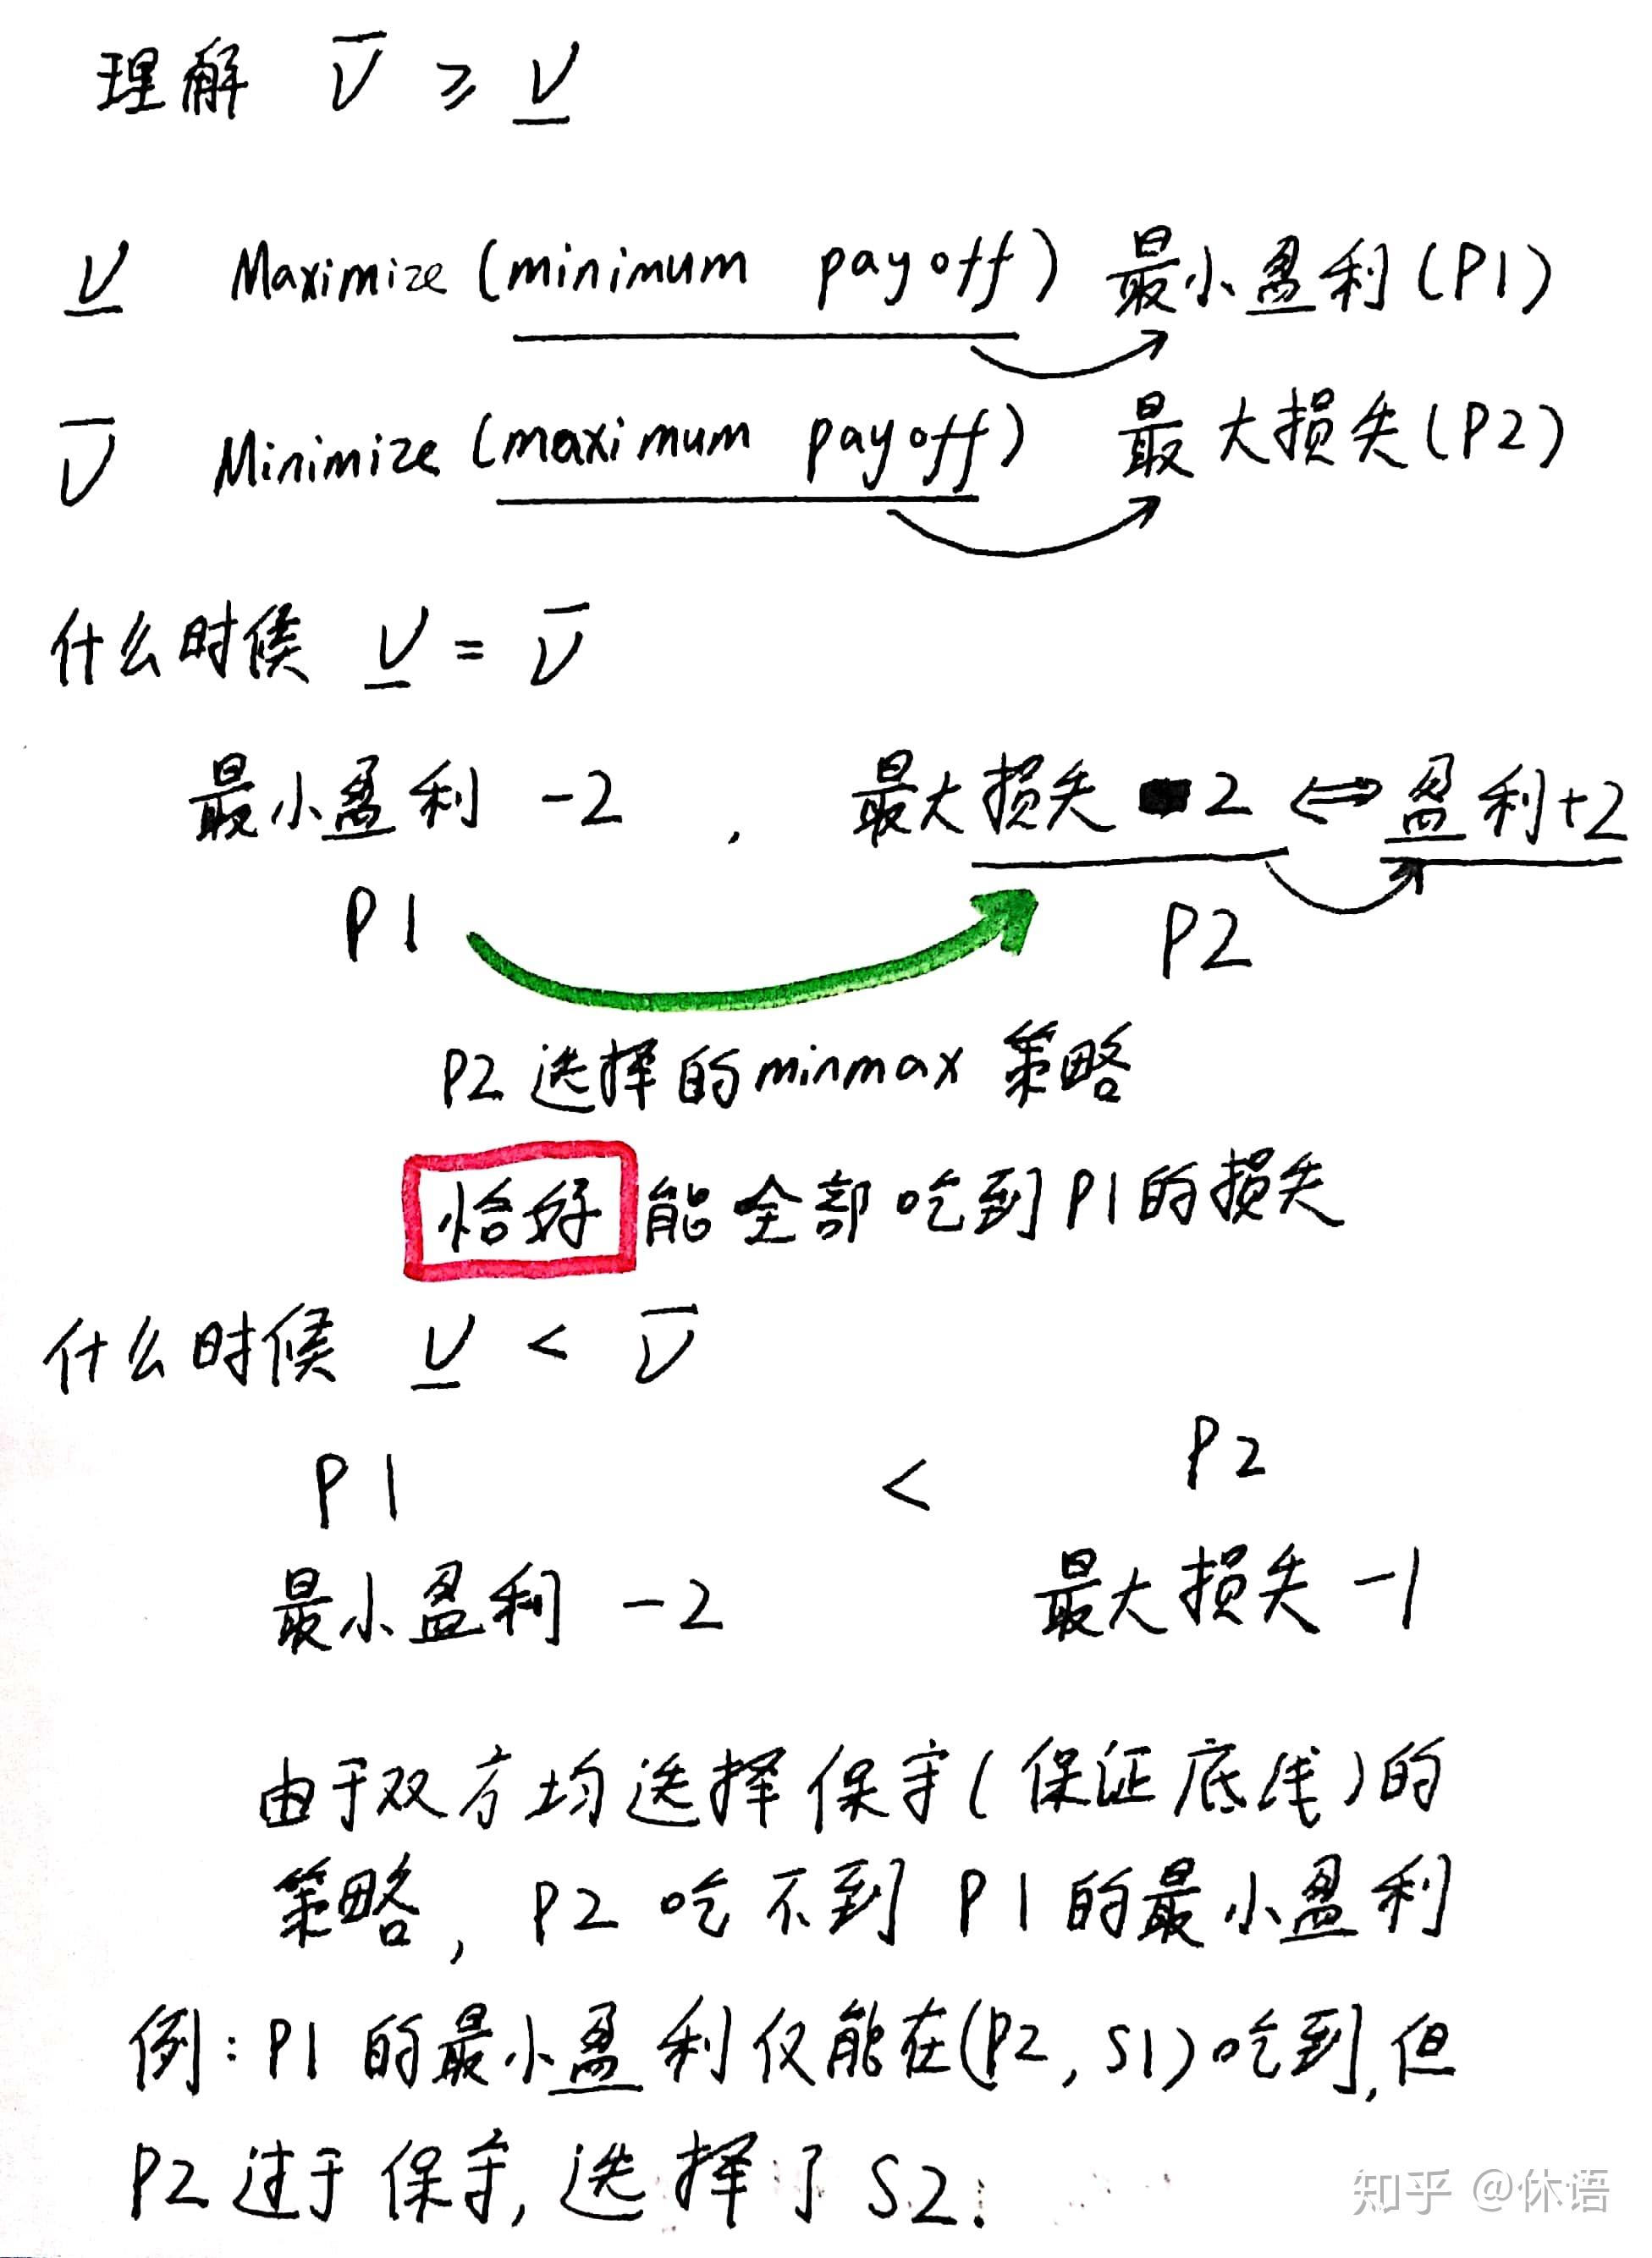 理解 V̅ ⩾ V̲
V̲ Maximize (minimum payoff) 最小盈利(P1)
V̅ Minimize (maximum payoff) 最大损失(P2)
什么时候 V̲ = V̅
最小盈利 -2 , 最大损失 2 ⇔ 盈利+2
P1 P2
P2 选择的minmax 策略
恰好 能全部吃到P1的损失
什么时候 V̲ < V̅
P1 < P2
最小盈利 -2 最大损失 -1
由于双方均选择保守(保证底线)的
策略, P2 吃不到 P1的最小盈利
例: P1 的最小盈利仅能在(P2, S1)吃到,但
P2 过于保守, 选择了 S2.
知乎 @休语